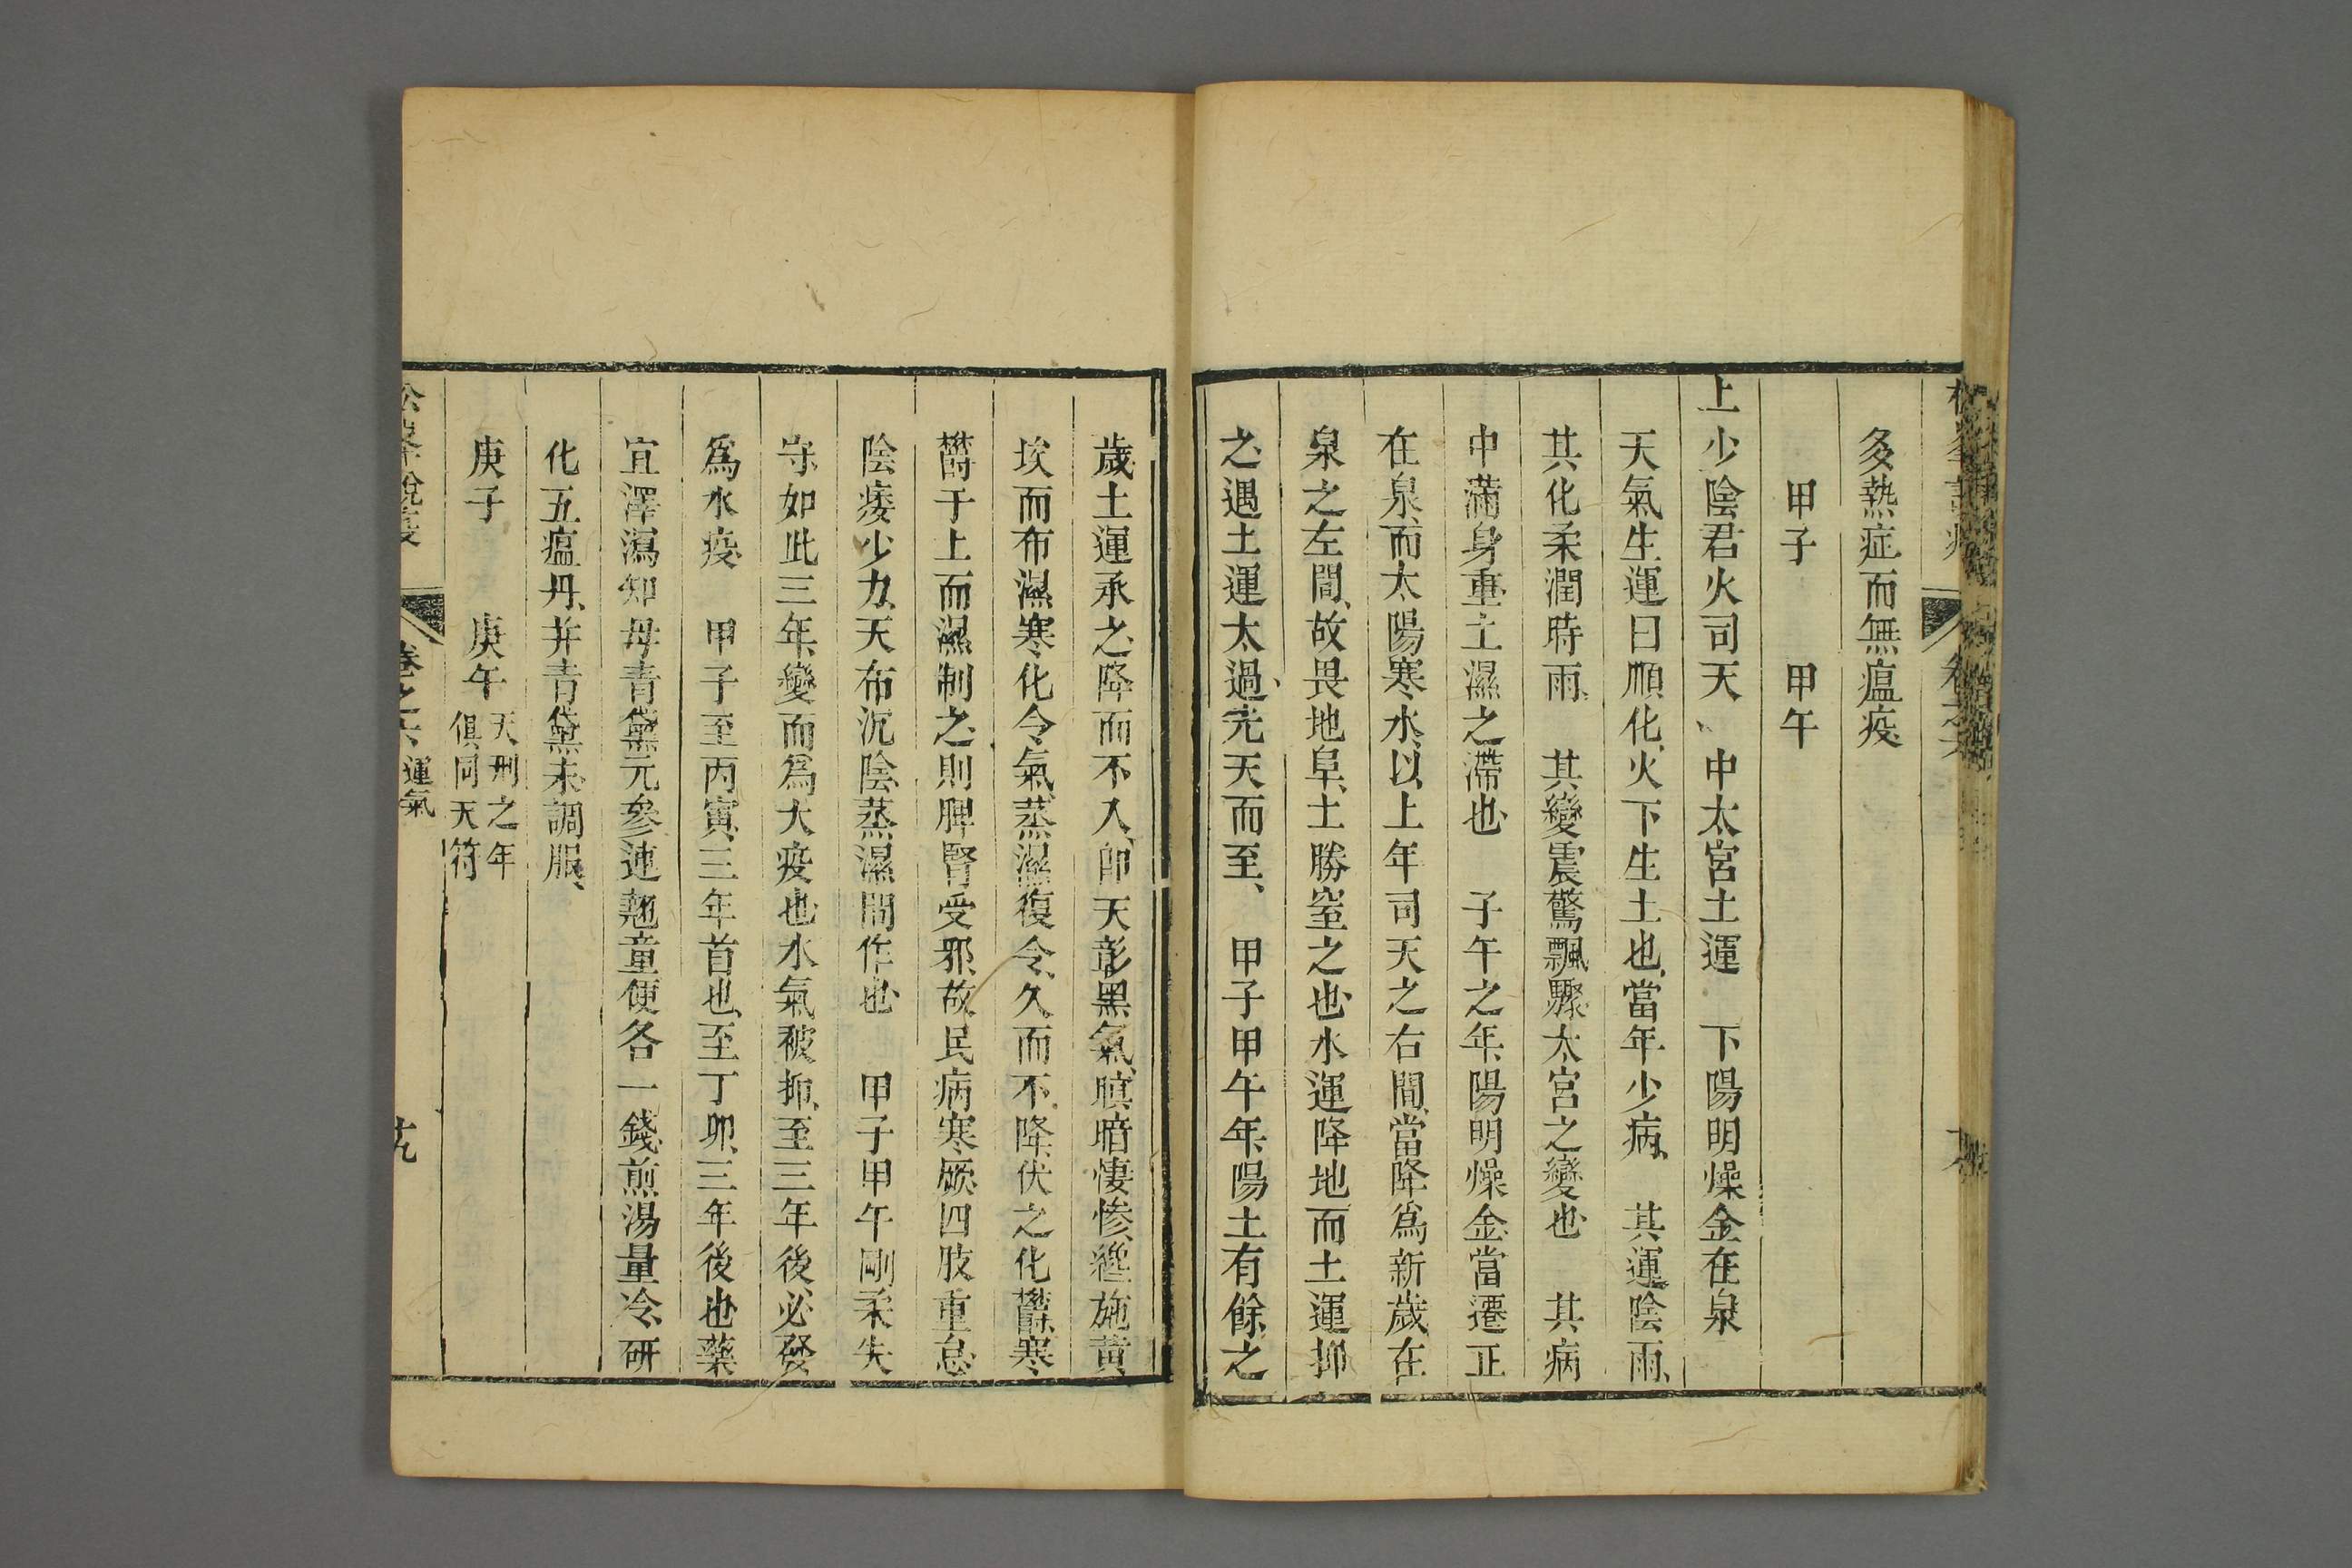 多熱症而無瘟疫
甲子　甲午
上少陰君火司天、中太宮土運　下陽明燥金在泉
天氣生運曰順化、火下生土也、當年少病、其運陰雨、
其化柔潤時雨、其變震驚飄驟、太宮之變也　其病
中滿身重、土濕之滯也　子午之年、陽明燥金、當遷正
在泉、而太陽寒水、以上年司天之右間、當降爲新歲在
泉之左間、故畏地阜、土勝窒之也、水運降地、而土運抑
之、遇土運太過、先天而至、甲子甲午年、陽土有餘之
歲、土運承之、降而不入、卽天彰黑氣、暝暗悽慘、纔施黃
埃而布濕、寒化令氣、蒸濕復令、久而不降、伏之化鬱、寒
鬱于上、而濕制之、則脾腎受邪、故民病寒厥四肢重怠、
陰痿少力、天布沉陰、蒸濕間作也　甲子甲午剛柔失
守、如此三年、變而爲大疫也、水氣被抑、至三年後、必發
爲水疫　甲子至丙寅、三年首也、至丁卯、三年後也、藥
宜澤瀉知母青黛元參連翹童便各一錢、煎湯量冷、研
化五瘟丹、并青黛末調服、
庚子　庚午 天刑之年 俱同天符
松峯說疫 卷之六 運氣 九